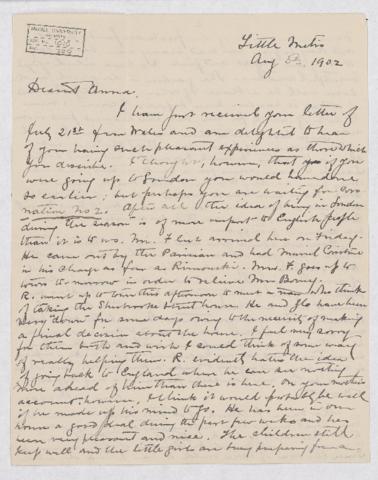 McGILL UNIVERSITY
Little Metis
Aug 5th, 1902
Dearest Anna,
I have just received your letter of
July 21st from Wales and am delighted to hear
of your having such pleasant experiences as those which
you describe. I thought, however, that if you
were going up to London you would have done
so earlier; but perhaps you are waiting for Coro
nation No 2. After all the idea of being in London
during the season is of more import to English people
than it is to us. Mr. F. arrived here on Friday.
He came out by the Parisian and had Muriel Constine
in his charge as far as Rimouski. Mrs. F. goes up to
town to-morrow in order to relieve Tom
R. went up to town this afternoon to meet a man who thinks
of taking the Sherbrooke Street house. He and Flo have been
very for some days owing to the necessity of making
a final decision about the house. I feel very sorry
for them both and wish I could think of some way
of really helping them. R. evidently hates the idea
of going back to England when he can see nothing
more ahead of him than there is here. On your mother's
account, however, I think it would probably be well
if he made up his mind to go. He has been in our
house a good deal during the past few weeks and has
been very pleasant and nice. The children still
keep well and the little girls are busy preparing for a